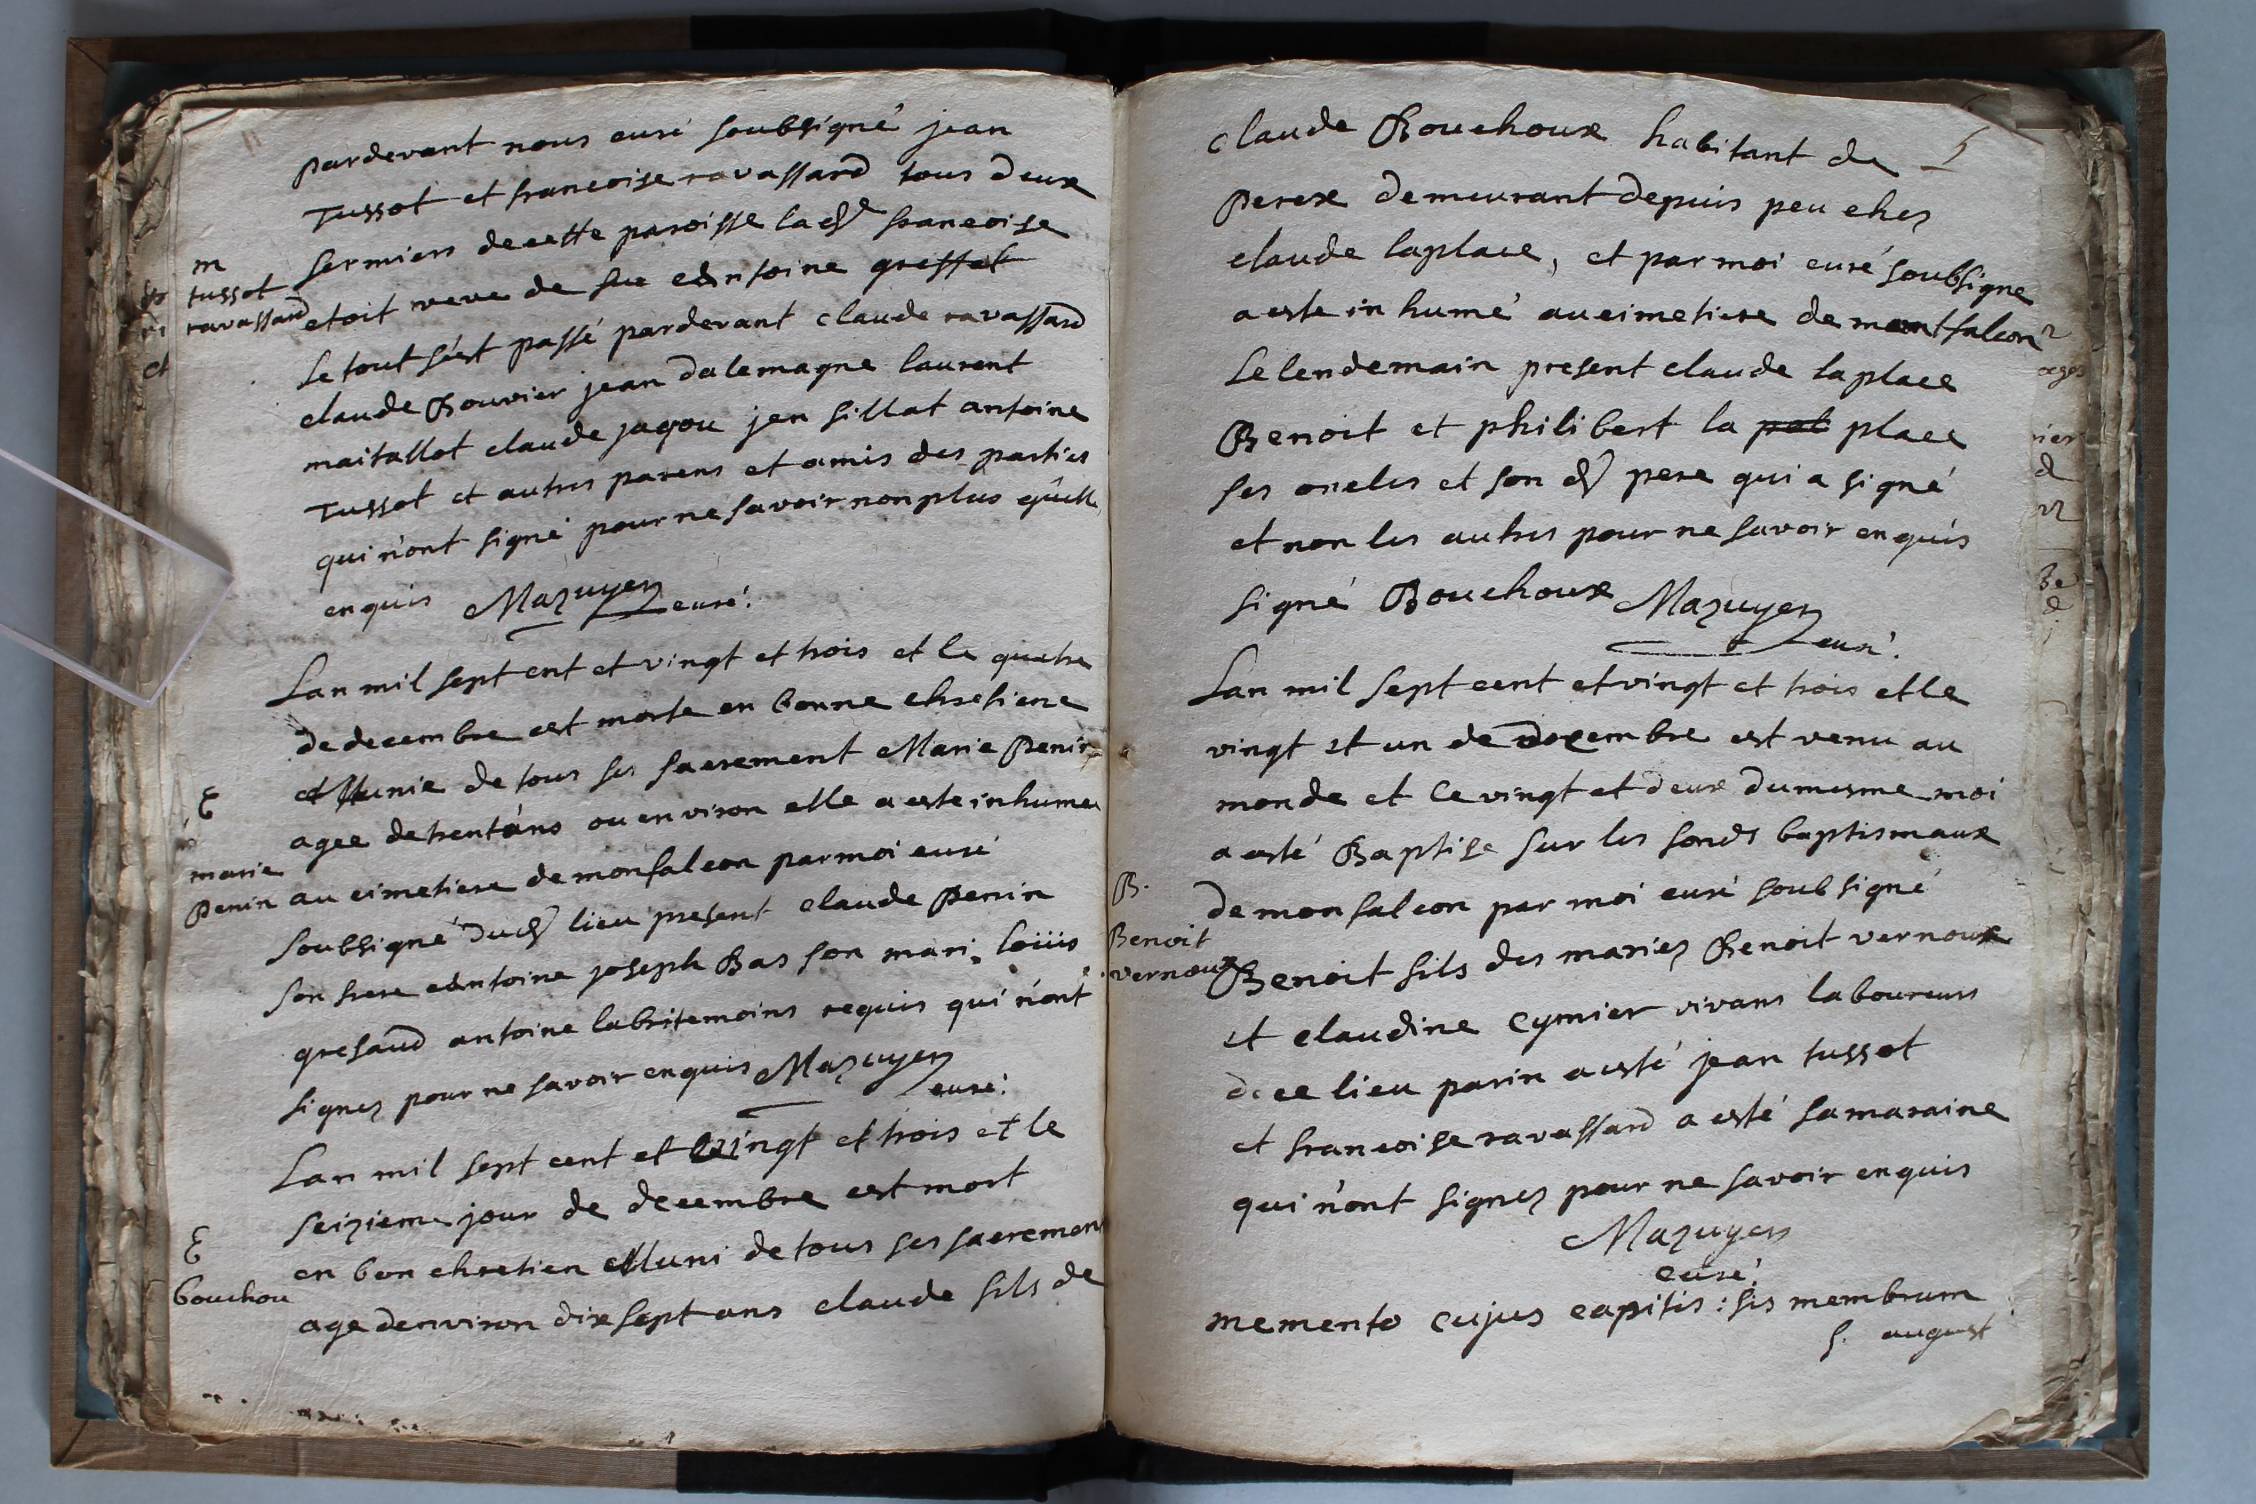 pardevant nous curé soubsigné jean
Tussot et francoise ravassard tous deux
fermiers de cette paroisse lade francoise
m
tussot
ravassard
etoit veve de fue antoine greffet
le tout s'est passé pardevant claude ravassard
claude Bouvier jean dalemagne laurent
maitallot claude jagou jen fillat antoine
Tussot et autres parens et amis des parties
qui n'ont signé pour ne savoir non plus qu'elle
enquis Mazuyer curé.
Lan mil sept cent et vingt et trois et le quatre
de decembre est morte en bonne chretiene
et Munie de tous ses sacrement Marie Penin
E
agee de trent'ans ou environ elle a este inhumee
marie
Penin
au cimetiere de monfalcon par moi curé
soubsigné dud lieu present claude Penin
son frere antoine joseph Bas son mari, loüis
gresaud antoine labri temoins requis qui n'ont
signez pour ne savoir enquis Mazuyer
curé.
Lan mil sept cent et vingt et trois et le
seizieme jour de decembre est mort
E
bouchou
en bon chretien Muni de tous ses sacremens
age denviron dix sept ans claude fils de
5
claude Bouchoux habitant de
Perex demeurant depuis peu ches
claude laplace, et par moi curé soubsigne
a este inhumé au cimetiere de montfalcon
le lendemain present claude la place
Benoit et philibert la pal place
ses oncles et son d pere qui a signé
et non les autres pour ne savoir enquis
signé Bouchoux Mazuyer
curé.
Lan mil sept cent et vingt et trois et le
vingt et un de decembre est venu au
monde et ce vingt et deux du mesme moi
a esté Baptise sur les fonds baptismaux
B.
Benoit
vernoux
de monfalcon par moi curé soubsigné
Benoit fils des mariez Benoit vernoux
et claudine Cymier vivans laboureurs
de ce lieu parin a esté jean tussot
et francoise ravassard a esté sa maraine
qui n'ont signez pour ne savoir enquis
Mazuyer
curé.
memento cujus capitis : sis membrum
S. august